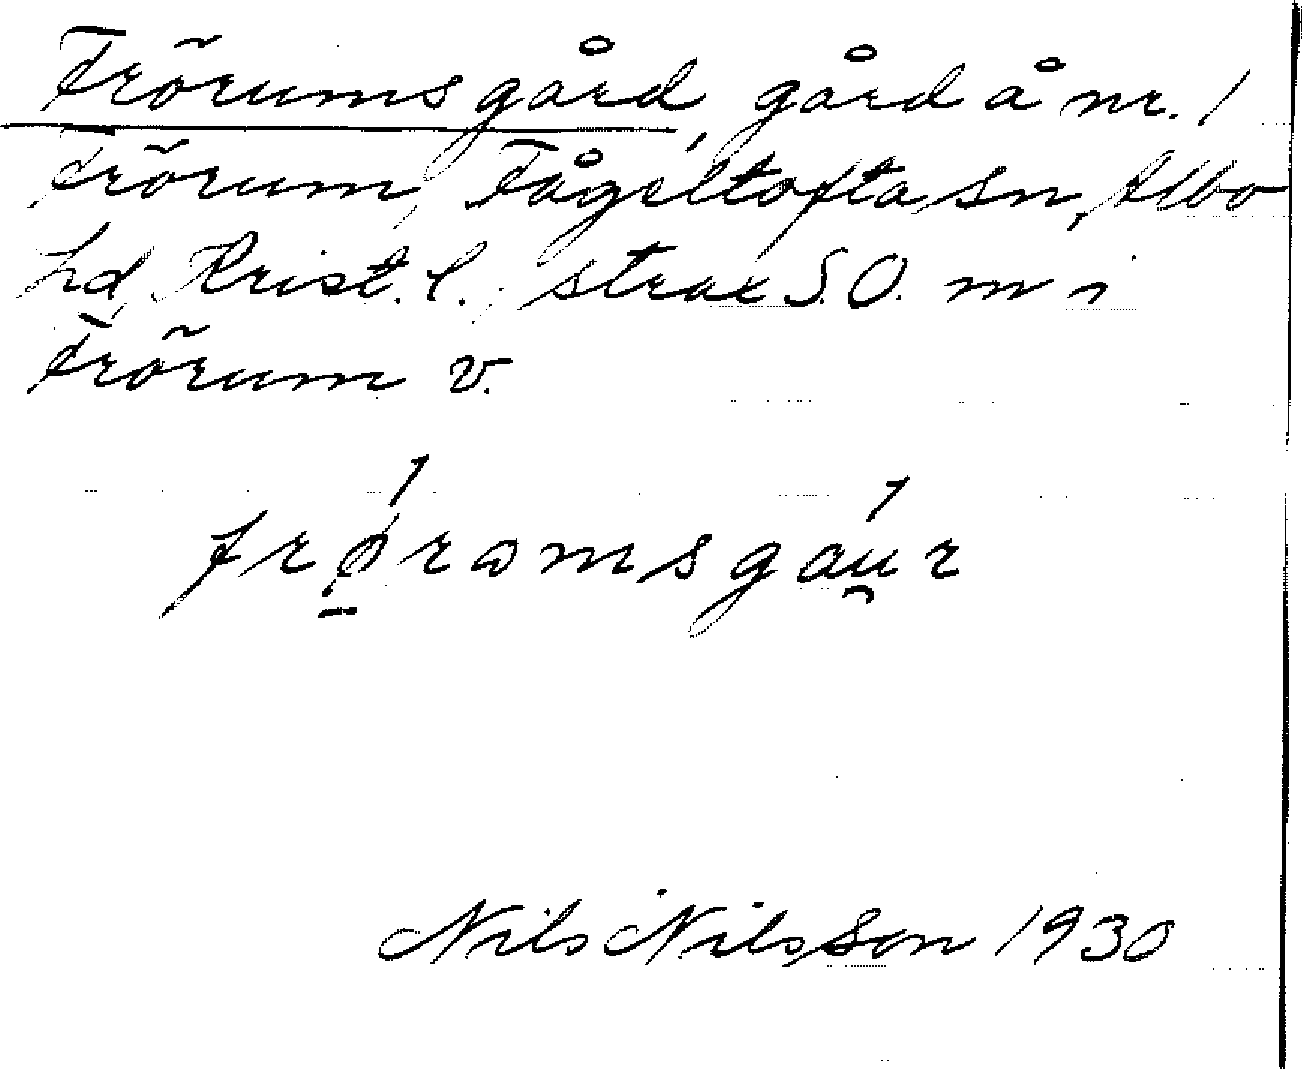 Frörumsgård, gård å nr. 1
Frörum, Fågeltofta sn, Albo
hd, Krist. l.; strax S.O. om i
Frörum v.
frǿ̱rɷmsgáu̯r
Nils Nilsson 1930